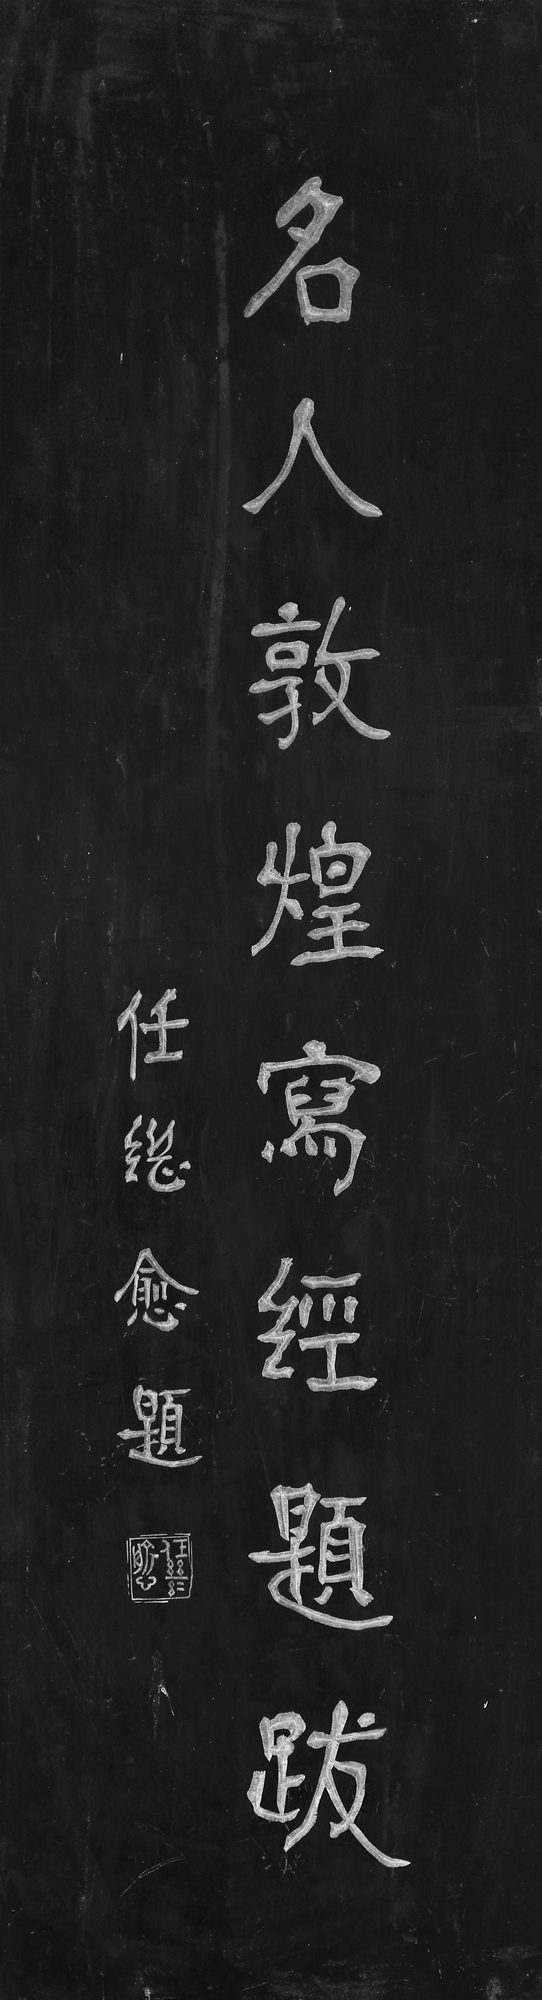 名人敦煌寫經題跋
任继愈題
任繼愈